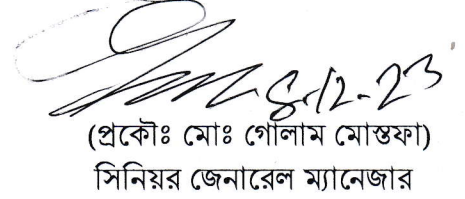 8-12-23
(প্রকৌঃ মোঃ গোলাম মোস্তফা)
সিনিয়র জেনারেল ম্যানেজার